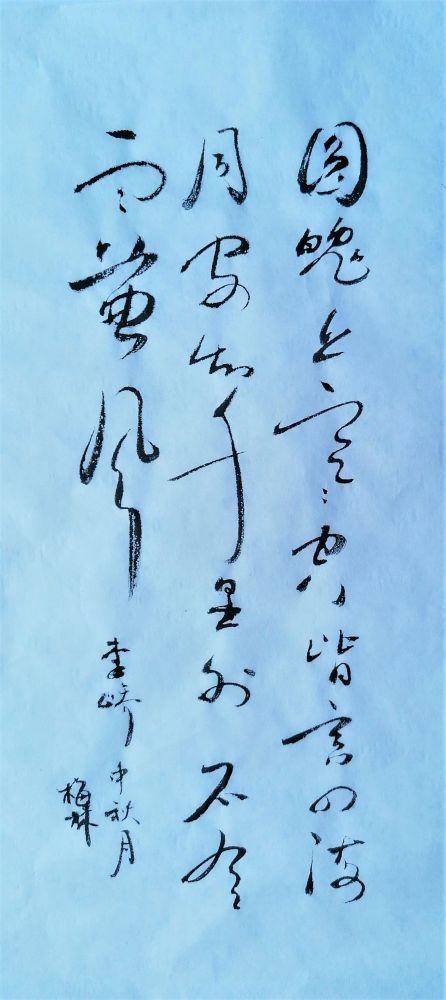 圆魄上寒空皆言四海
同安知千里外不有
雨兼风
李峤中秋月
梅